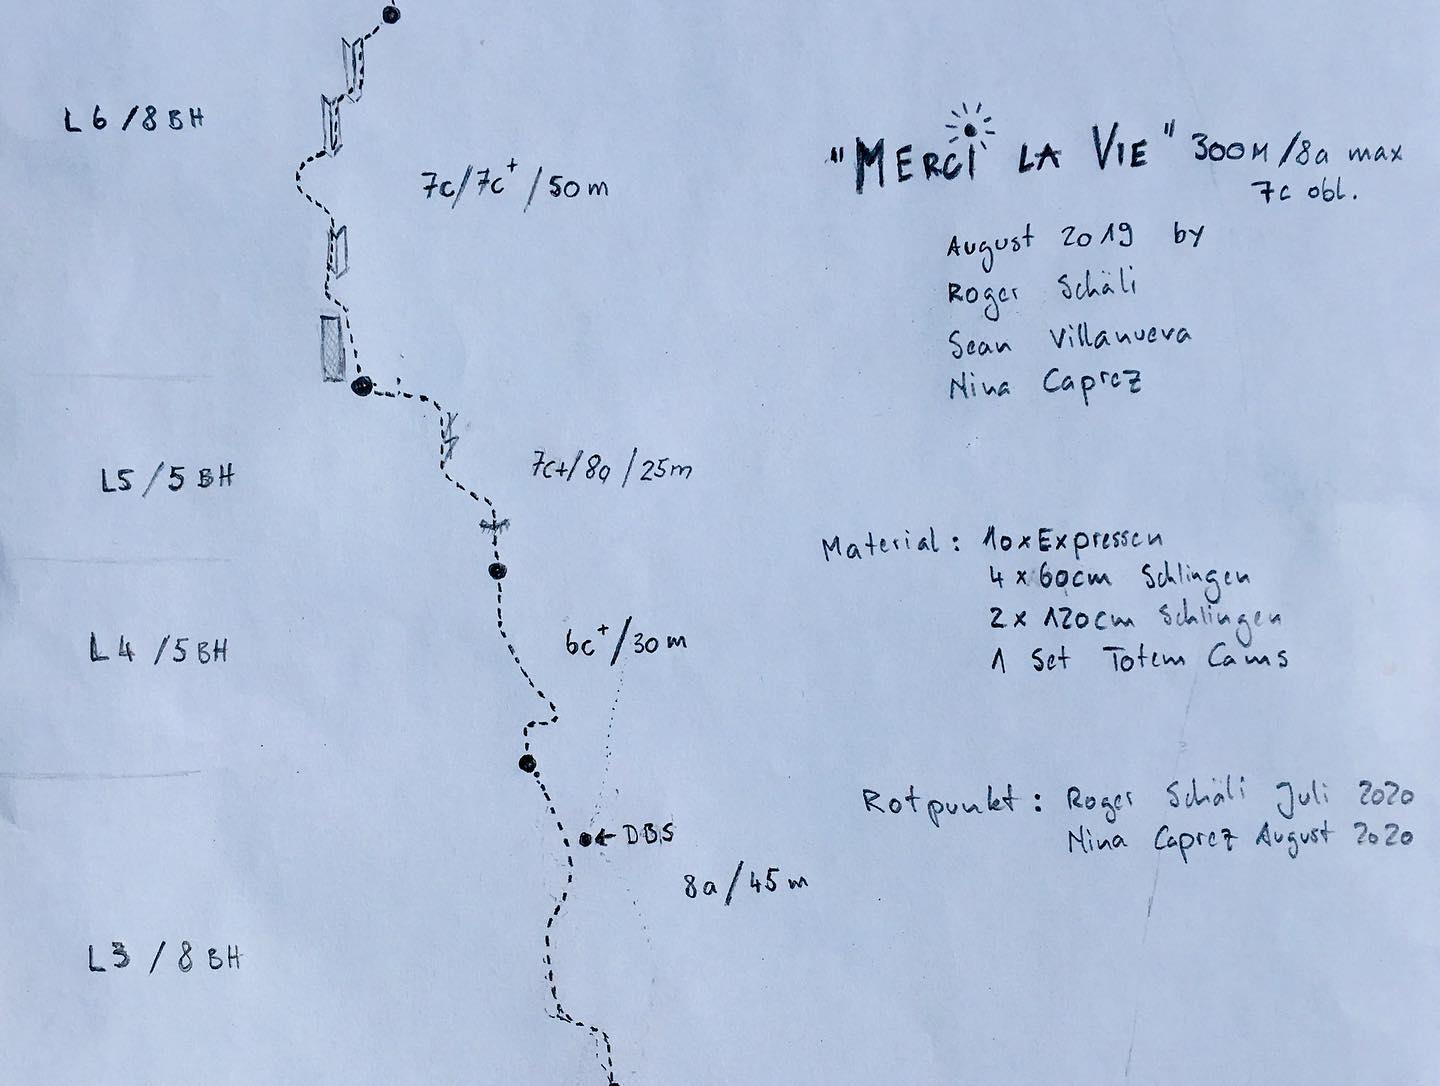 L6/8BH
7c/7c+/50m
"MERCI LA VIE" 300M/8a max
7c obl.
August 2019 by
Roger Schäli
Sean Villanueva
Nina Caprez
L5/5BH
7c+/8a/25m
Material: 10xExpressen
4x60cm Schlingen
2x120cm Schlingen
1 Set Totem Cams
L4/5BH
6c+/30m
Rotpunkt: Roger Schäli Juli 2020
Nina Caprez August 2020
DBS
8a/45m
L3/8BH